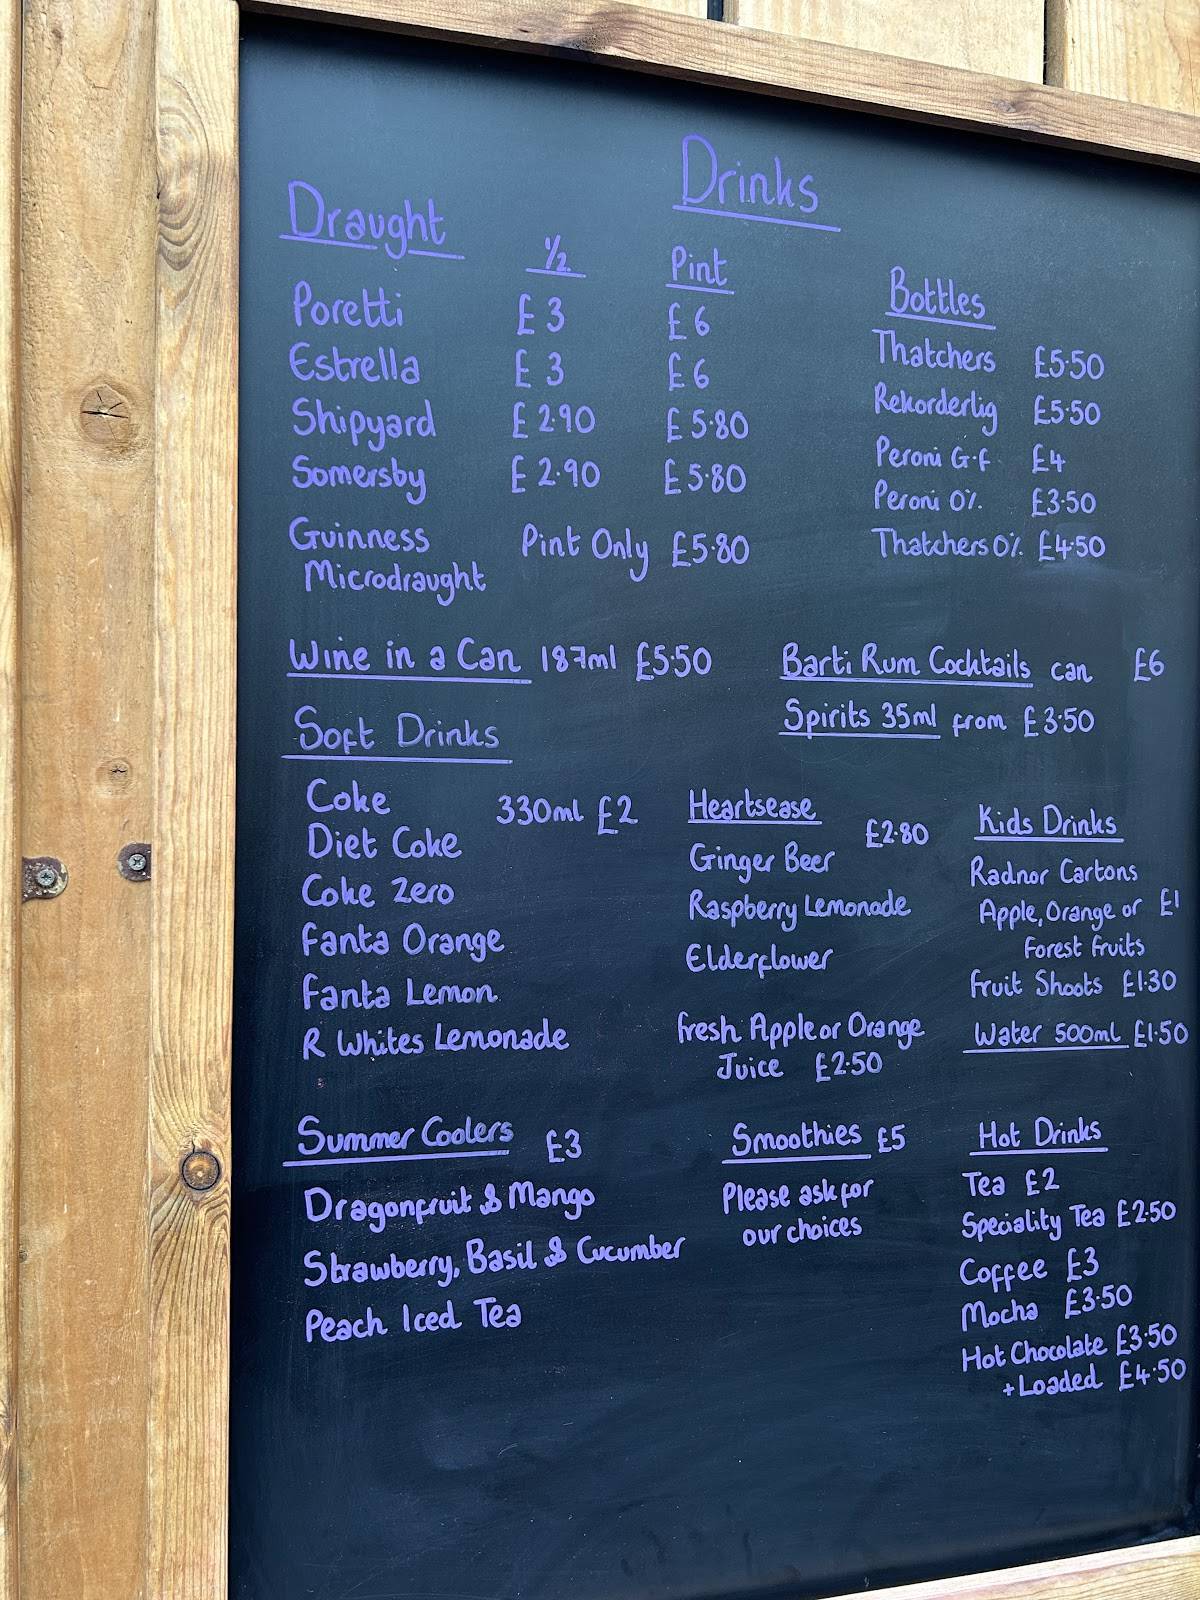 Drinks
Draught ½ Pint
Poretti £3 £6
Estrella £3 £6
Shipyard £2.90 £5.80
Somersby £2.90 £5.80
Guinness Pint Only £5.80
Microdraught
Bottles
Thatchers £5.50
Rekorderlig £5.50
Peroni G.F £4
Peroni 0% £3.50
Thatchers 0% £4.50
Wine in a Can 187ml £5.50
Barti Rum Cocktails can £6
Spirits 35ml from £3.50
Soft Drinks
Coke 330ml £2
Diet Coke
Coke Zero
Fanta Orange
Fanta Lemon
R Whites Lemonade
Heartsease £2.80
Ginger Beer
Raspberry Lemonade
Elderflower
Fresh Apple or Orange
Juice £2.50
Kids Drinks
Radnor Cartons
Apple, Orange or £1
Forest Fruits
Fruit Shoots £1.30
Water 500ml £1.50
Summer Coolers £3
Dragonfruit & Mango
Strawberry, Basil & Cucumber
Peach Iced Tea
Smoothies £5
Please ask for
our choices
Hot Drinks
Tea £2
Speciality Tea £2.50
Coffee £3
Mocha £3.50
Hot Chocolate £3.50
+ Loaded £4.50